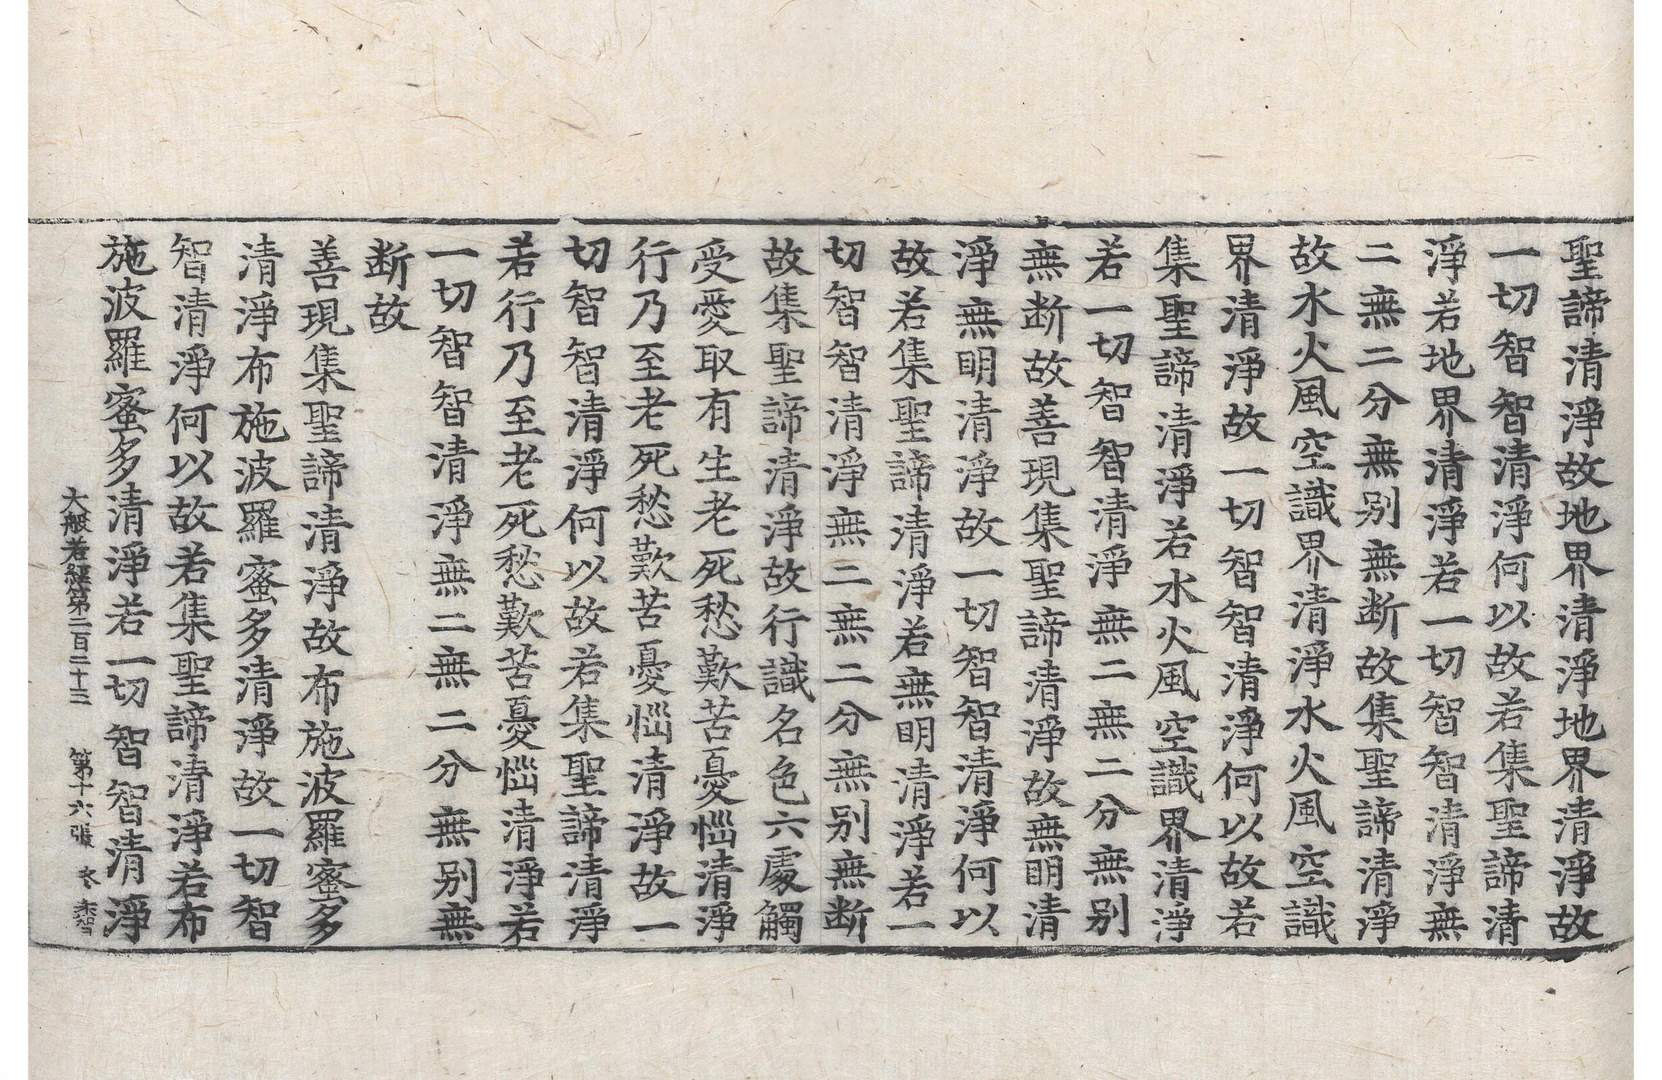 聖諦清淨故地界清淨地界清淨故
一切智智清淨何以故若集聖諦清
淨若地界清淨若一切智智清淨無
二無二分無别無断故集聖諦清淨
故水火風空識界清淨水火風空識
界清淨故一切智智清淨何以故若
集聖諦清淨若水火風空識界清淨
若一切智智清淨無二無二分無别
無断故善現集聖諦清淨故無明清
淨無明清淨故一切智智清淨何以
故若集聖諦清淨若無明清淨若一
切智智清淨無二無二分無别無断
故集聖諦清淨故行識名色六處觸
受愛取有生老死愁歎苦憂惱清淨
行乃至老死愁歎苦憂惱清淨故一
切智智清淨何以故若集聖諦清淨
若行乃至老死愁歎苦憂惱清淨若
一切智智清淨無二無二分無别無
断故
善現集聖諦清淨故布施波羅蜜多
清淨布施波羅蜜多清淨故一切智
智清淨何以故若集聖諦清淨若布
施波羅蜜多清淨若一切智智清淨
大般若經第二百二十三 第十六張 冬